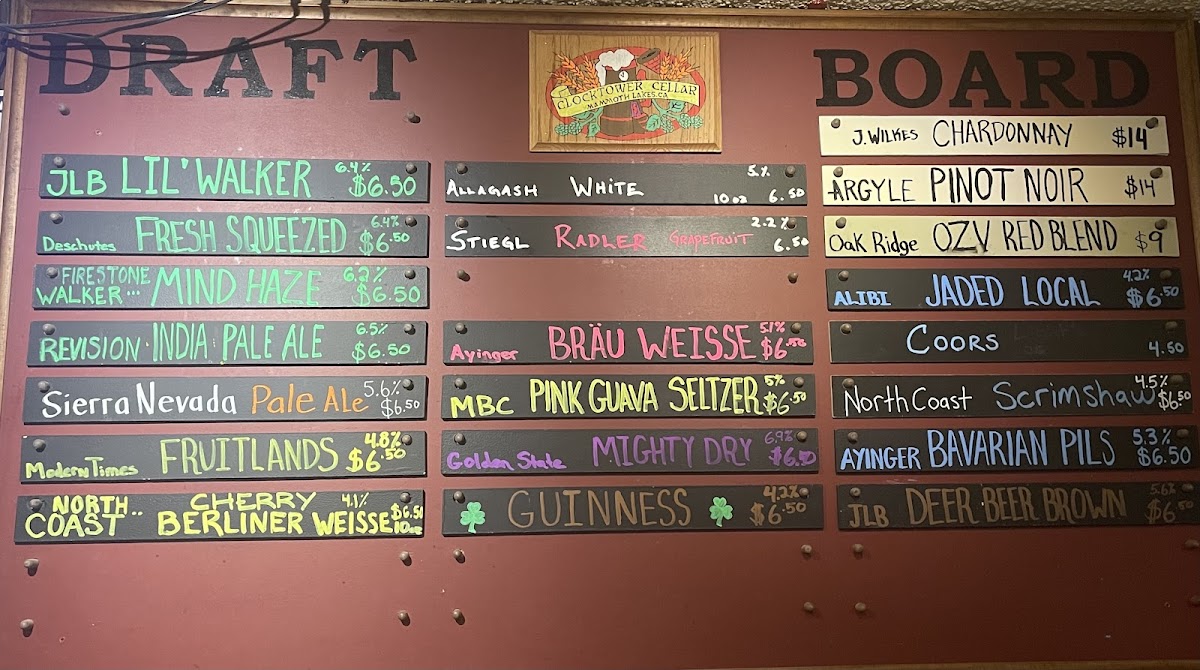 DRAFT
BOARD
CLOCKTOWER CELLAR
MAMMOTH LAKES, CA
JLB LIL' WALKER 6.4% $6.50
Deschutes FRESH SQUEEZED 6.4% $6.50
FIRESTONE
WALKER... MIND HAZE 6.2% $6.50
REVISION INDIA PALE ALE 6.5% $6.50
Sierra Nevada Pale Ale 5.6% $6.50
Modern Times FRUITLANDS 4.8% $6.50
NORTH .. CHERRY 4.1% $6.50
COAST BERLINER WEISSE 10oz
ALLAGASH WHITE 5.% 10 oz 6.50
STIEGL RADLER GRAPEFRUIT 2.2% 6.50
Ayinger BRÄU WEISSE 5.1% $6.50
MBC PINK GUAVA SELTZER 5% $6.50
Golden State MIGHTY DRY 6.9% $6.50
GUINNESS 4.2% $6.50
J. WILKES CHARDONNAY $14
ARGYLE PINOT NOIR $14
Oak Ridge OZV RED BLEND $9
ALIBI JADED LOCAL 4.2% $6.50
COORS 4.50
North Coast Scrimshaw 4.5% $6.50
AYINGER BAVARIAN PILS 5.3% $6.50
JLB DEER BEER BROWN 5.6% $6.50